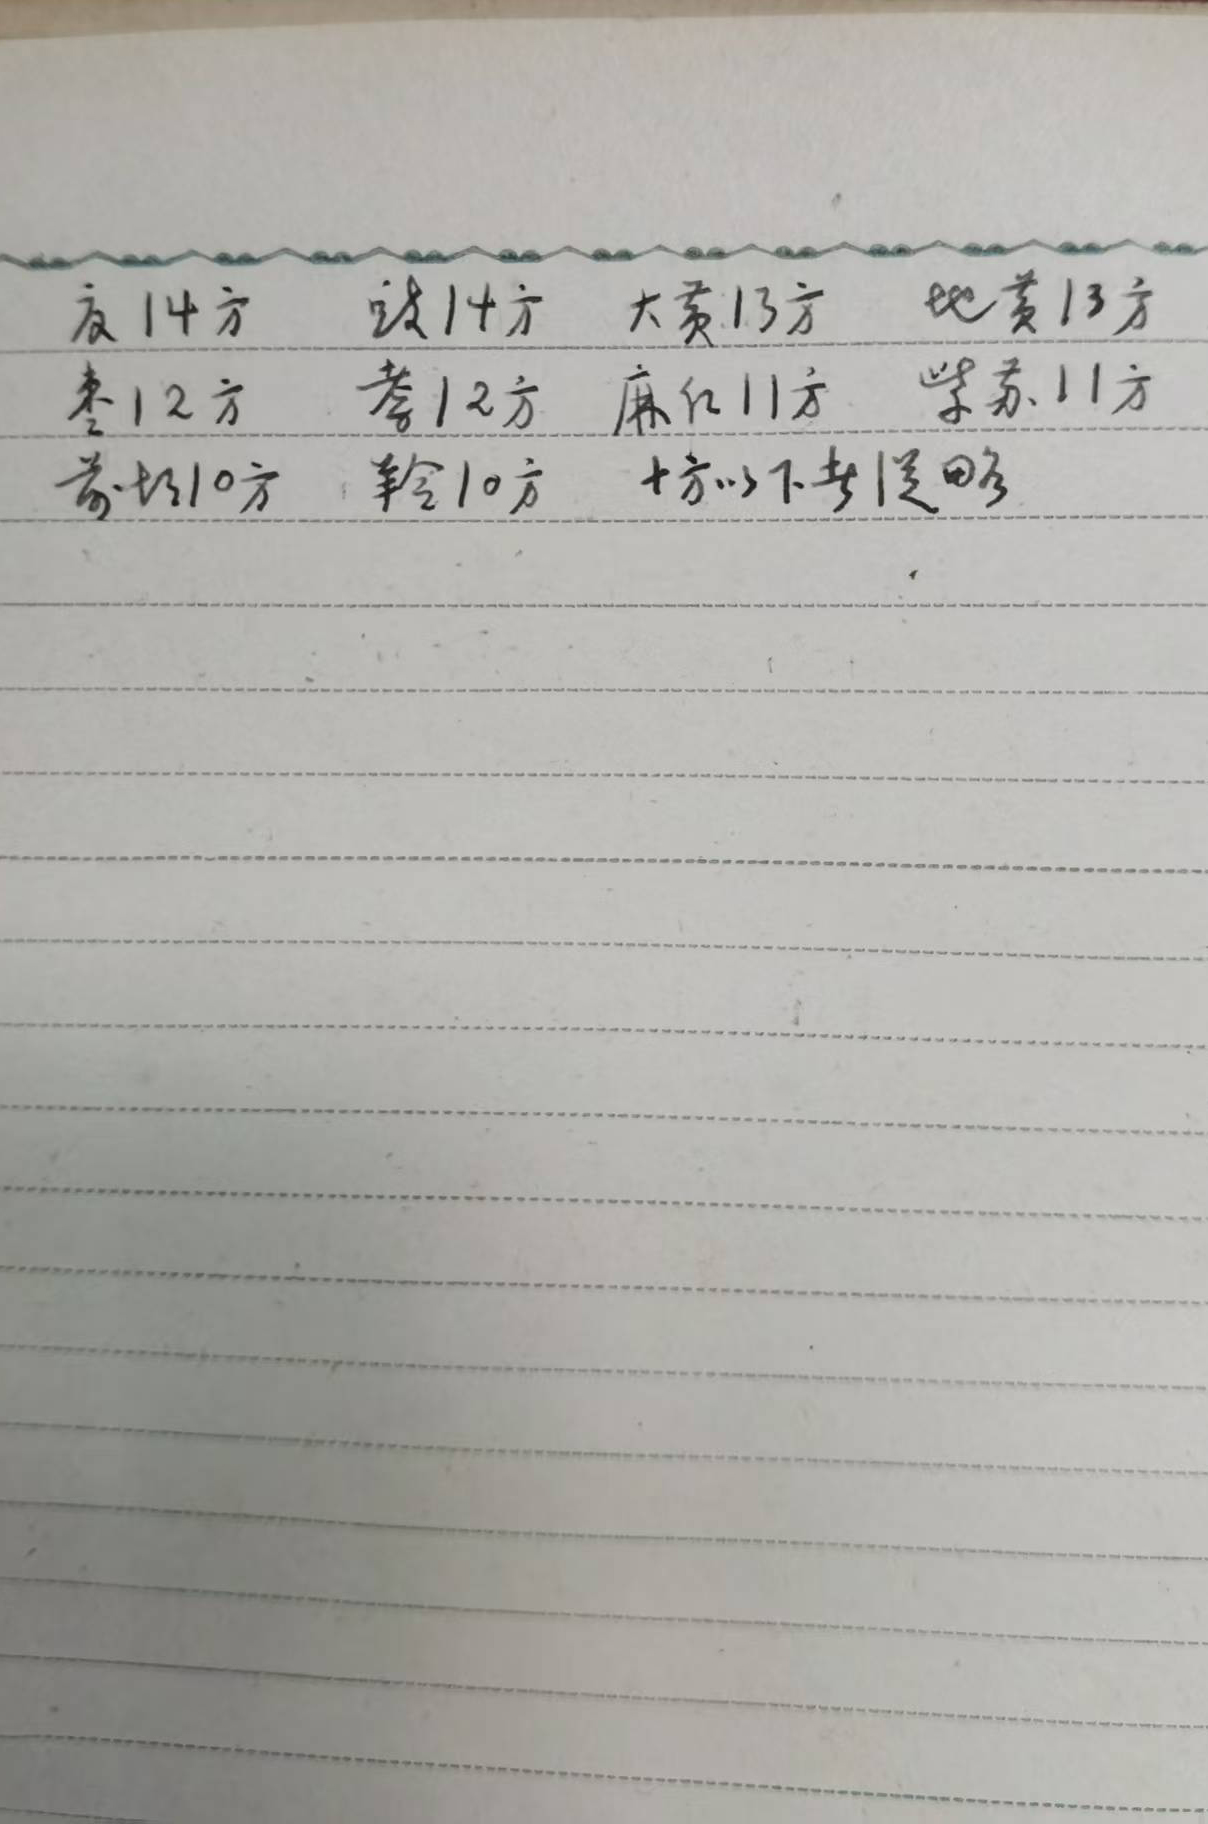 14方 豉14方 大黄13方 地黄13方
枣12方 12方 麻仁11方 紫苏11方
前胡10方 羚10方 十方以下者從略